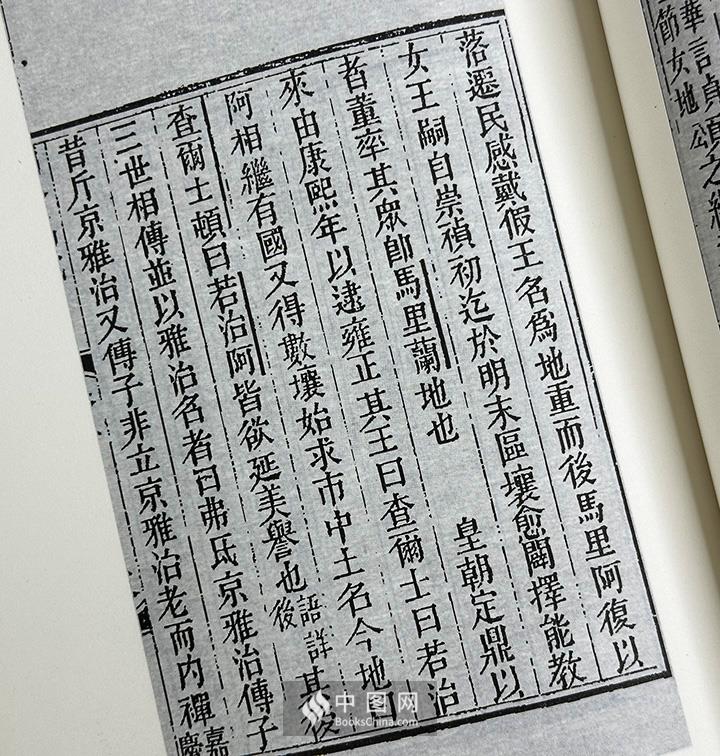 華言貞
節女地公
落遷民感戴假王名爲地重而後馬里阿復以
女王嗣自崇禎初迄於明末區壤愈闢擇能教
者董率其眾卽馬里蘭地也 皇朝定鼎以
來由康熙年以逮雍正其王曰查爾士曰若治
阿相繼有國又得數壤始求市中土名今地
查爾士頓曰若治阿皆欲延美譽也語詳後其後
三世相傳並以雅治名者曰弗氏京雅治傳子
昔斤京雅治又傳子非立京雅治老而內禪嘉慶
中图网
BooksChina.com